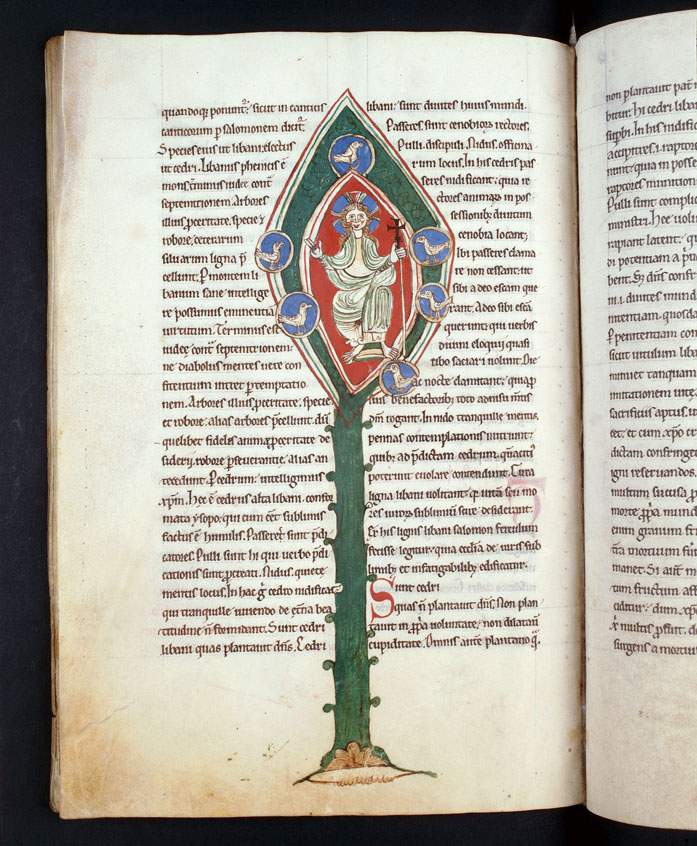 quandoq; ponunt̃. sicut in canticis
canticorum p̃ salomonem dicit̃.
Species eius ut libani. electus
ut cedri. Libanus phenicis ẽ
septentrionem. Arbores
illius p̃ceritate. specie &
robore. ceterarum
siluarum ligna p̃
cellunt. P̱ montem li
banum sane intellige
re possumus eminentiã
uirtutum.
iudeẽ cont̃ septentrionem
ne diabolus mentes uere con
fitentium intret p̱ temptatio
nem. Arbores illius p̃ceritate. specie
et robore. alias arbores p̃cellunt. q̃a
quelibet fidelis anima p̃ceritate de
siderii. robore p̱seuerantie. alias an
tecedunt. P̱ cedrum. intelligimus
xp̃m. Hec ẽ cedrus alta libani. confor
mata ysopo. qui cum eẽt sublimis
factus ẽ humilis. Passeres sunt p̃di
catores. Pulli sunt hi qui uerbo p̃di
cationis sunt p̃creati. Nidus. quiete
mentis locus. In hac g̃ cedro nidificãt
qui tranquille uiuendo de et̃na bea
titudine ñ formidant. Sunt cedri
libani quas plantauit dñs. Cedri
libani. sunt diuites huius mundi.
Passeres sunt cenobiorũ rectores.
Pulli. discipuli. Nidus. officina
rum locus. In his cedris pas
seres nidificant. quia re
ctores animarũ in pos
sessionib; diuitum
cenobia locant.
Ibi passeres clama
re non cessant. ut
sibi a deo escam que
rant. A deo sibi escã
querunt. qui uerbis
diuini eloquii quasi
cibo saciari uolunt. Die
ac nocte clamitant. quia p̱
suis benefactorib; toto adnisu mt̃is
dñm rogant. In nido tranquille mentis.
pennas contemplationis nutriunt.
quib; ad p̃dictam cedrum. quãtociꝰ
poterunt euolare contendunt. Circa
ligna libani uolitant. quia uitã seu mo
res uirorũ sublimiũ scire desiderant.
Ex his lignis libani salomon ferculum
fecisse legitur. quia eccl̃ia de uiris sub
limib; et infatigabilib; edificatur.
Sunt cedri
quas ñ plantauit dñs. Non plan
tauit in p̱pa uoluntate. non dilatauit
cupiditate. Omnis aut̃ plantatio q̃
non plantauit pat̃
bitur. Hi cedri libani
supbi. In his nidific
accipitres. i. raptores
raptores
Pulli sunt complic
ministri. Hec uolu
rapiant latent. qu
di potentiam a p̱
bent. Sz dñs confr
ni. i. diuites mund
mitentiam. quosda
P̱ penitentiam com
sicut uitulum liba
minuet tanquam
imitationem uite
sacrificiis aptus. ut
eet. et cum xp̃o cr
dictam confringet
igni reseruandos.
multum sucusa p̱
morte p̱pa mund
enim granum fr
t̃ra mortuum fu
manet. Si aut̃ m
tum fructum aff
ciditur. dum. xp̃s
multis p̱fuit. d
surgens a mortui